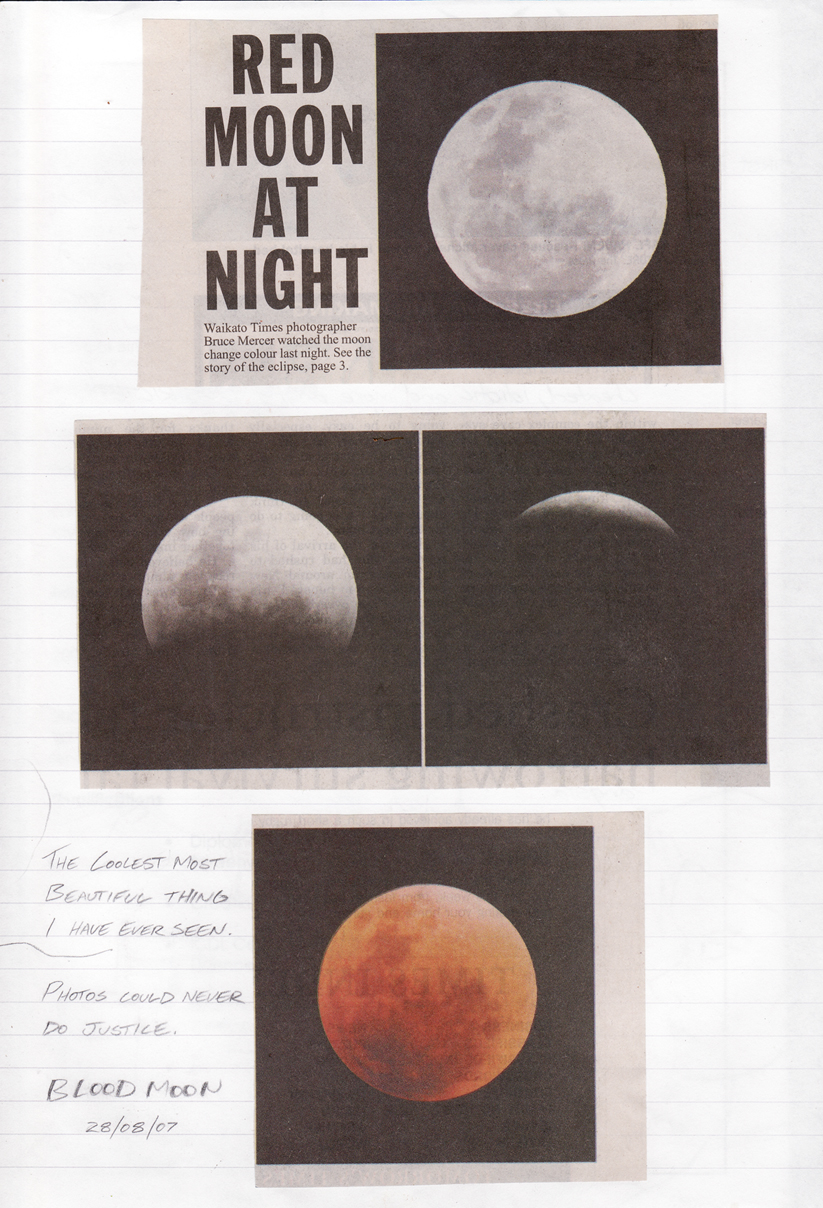 RED
MOON
AT
NIGHT
Waikato Times photographer
Bruce Mercer watched the moon
change colour last night. See the
story of the eclipse, page 3.
THE COOLEST MOST
BEAUTIFUL THING
I HAVE EVER SEEN.
PHOTOS COULD NEVER
DO JUSTICE.
BLOOD MOON
28/08/07